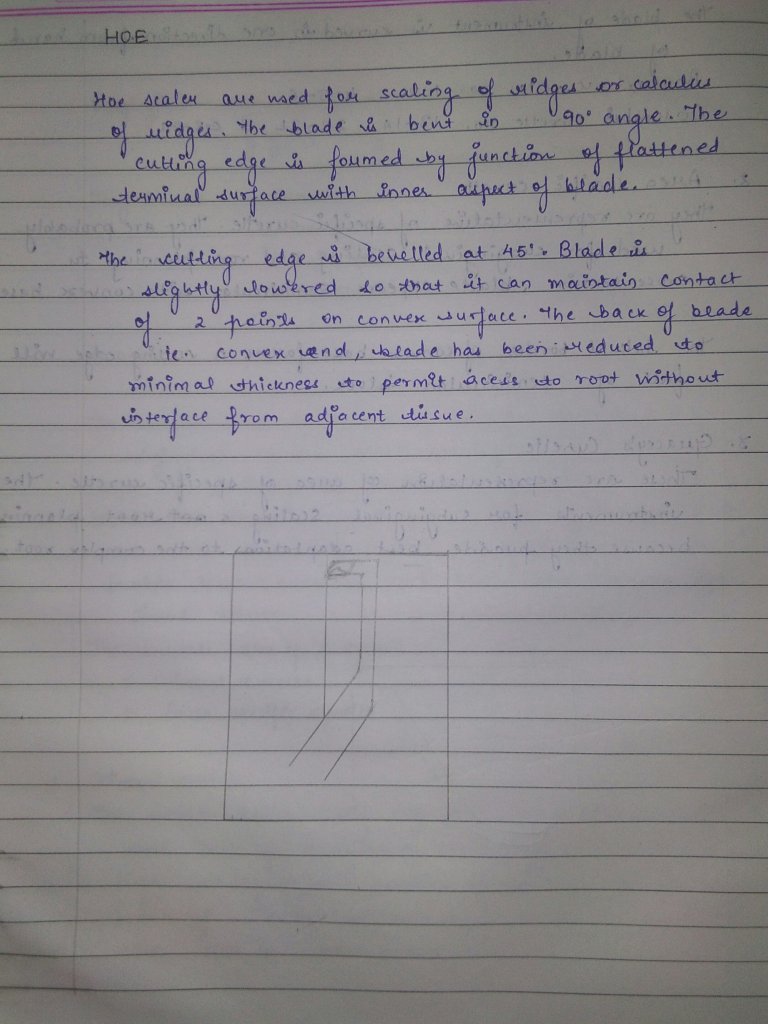 HOE
Hoe scaler are used for scaling of ridges or calculus
of ridges. The blade is bent in 90° angle. The
cutting edge is formed by junction of flattened
terminal surface with inner aspect of blade.
The cutting edge is bevelled at 45°. Blade is
slightly lowered so that it can maintain contact
of 2 points on convex surface. The back of blade
ie. convex end, blade has been reduced to
minimal thickness to permit acess to root without
interface from adjacent tissue.